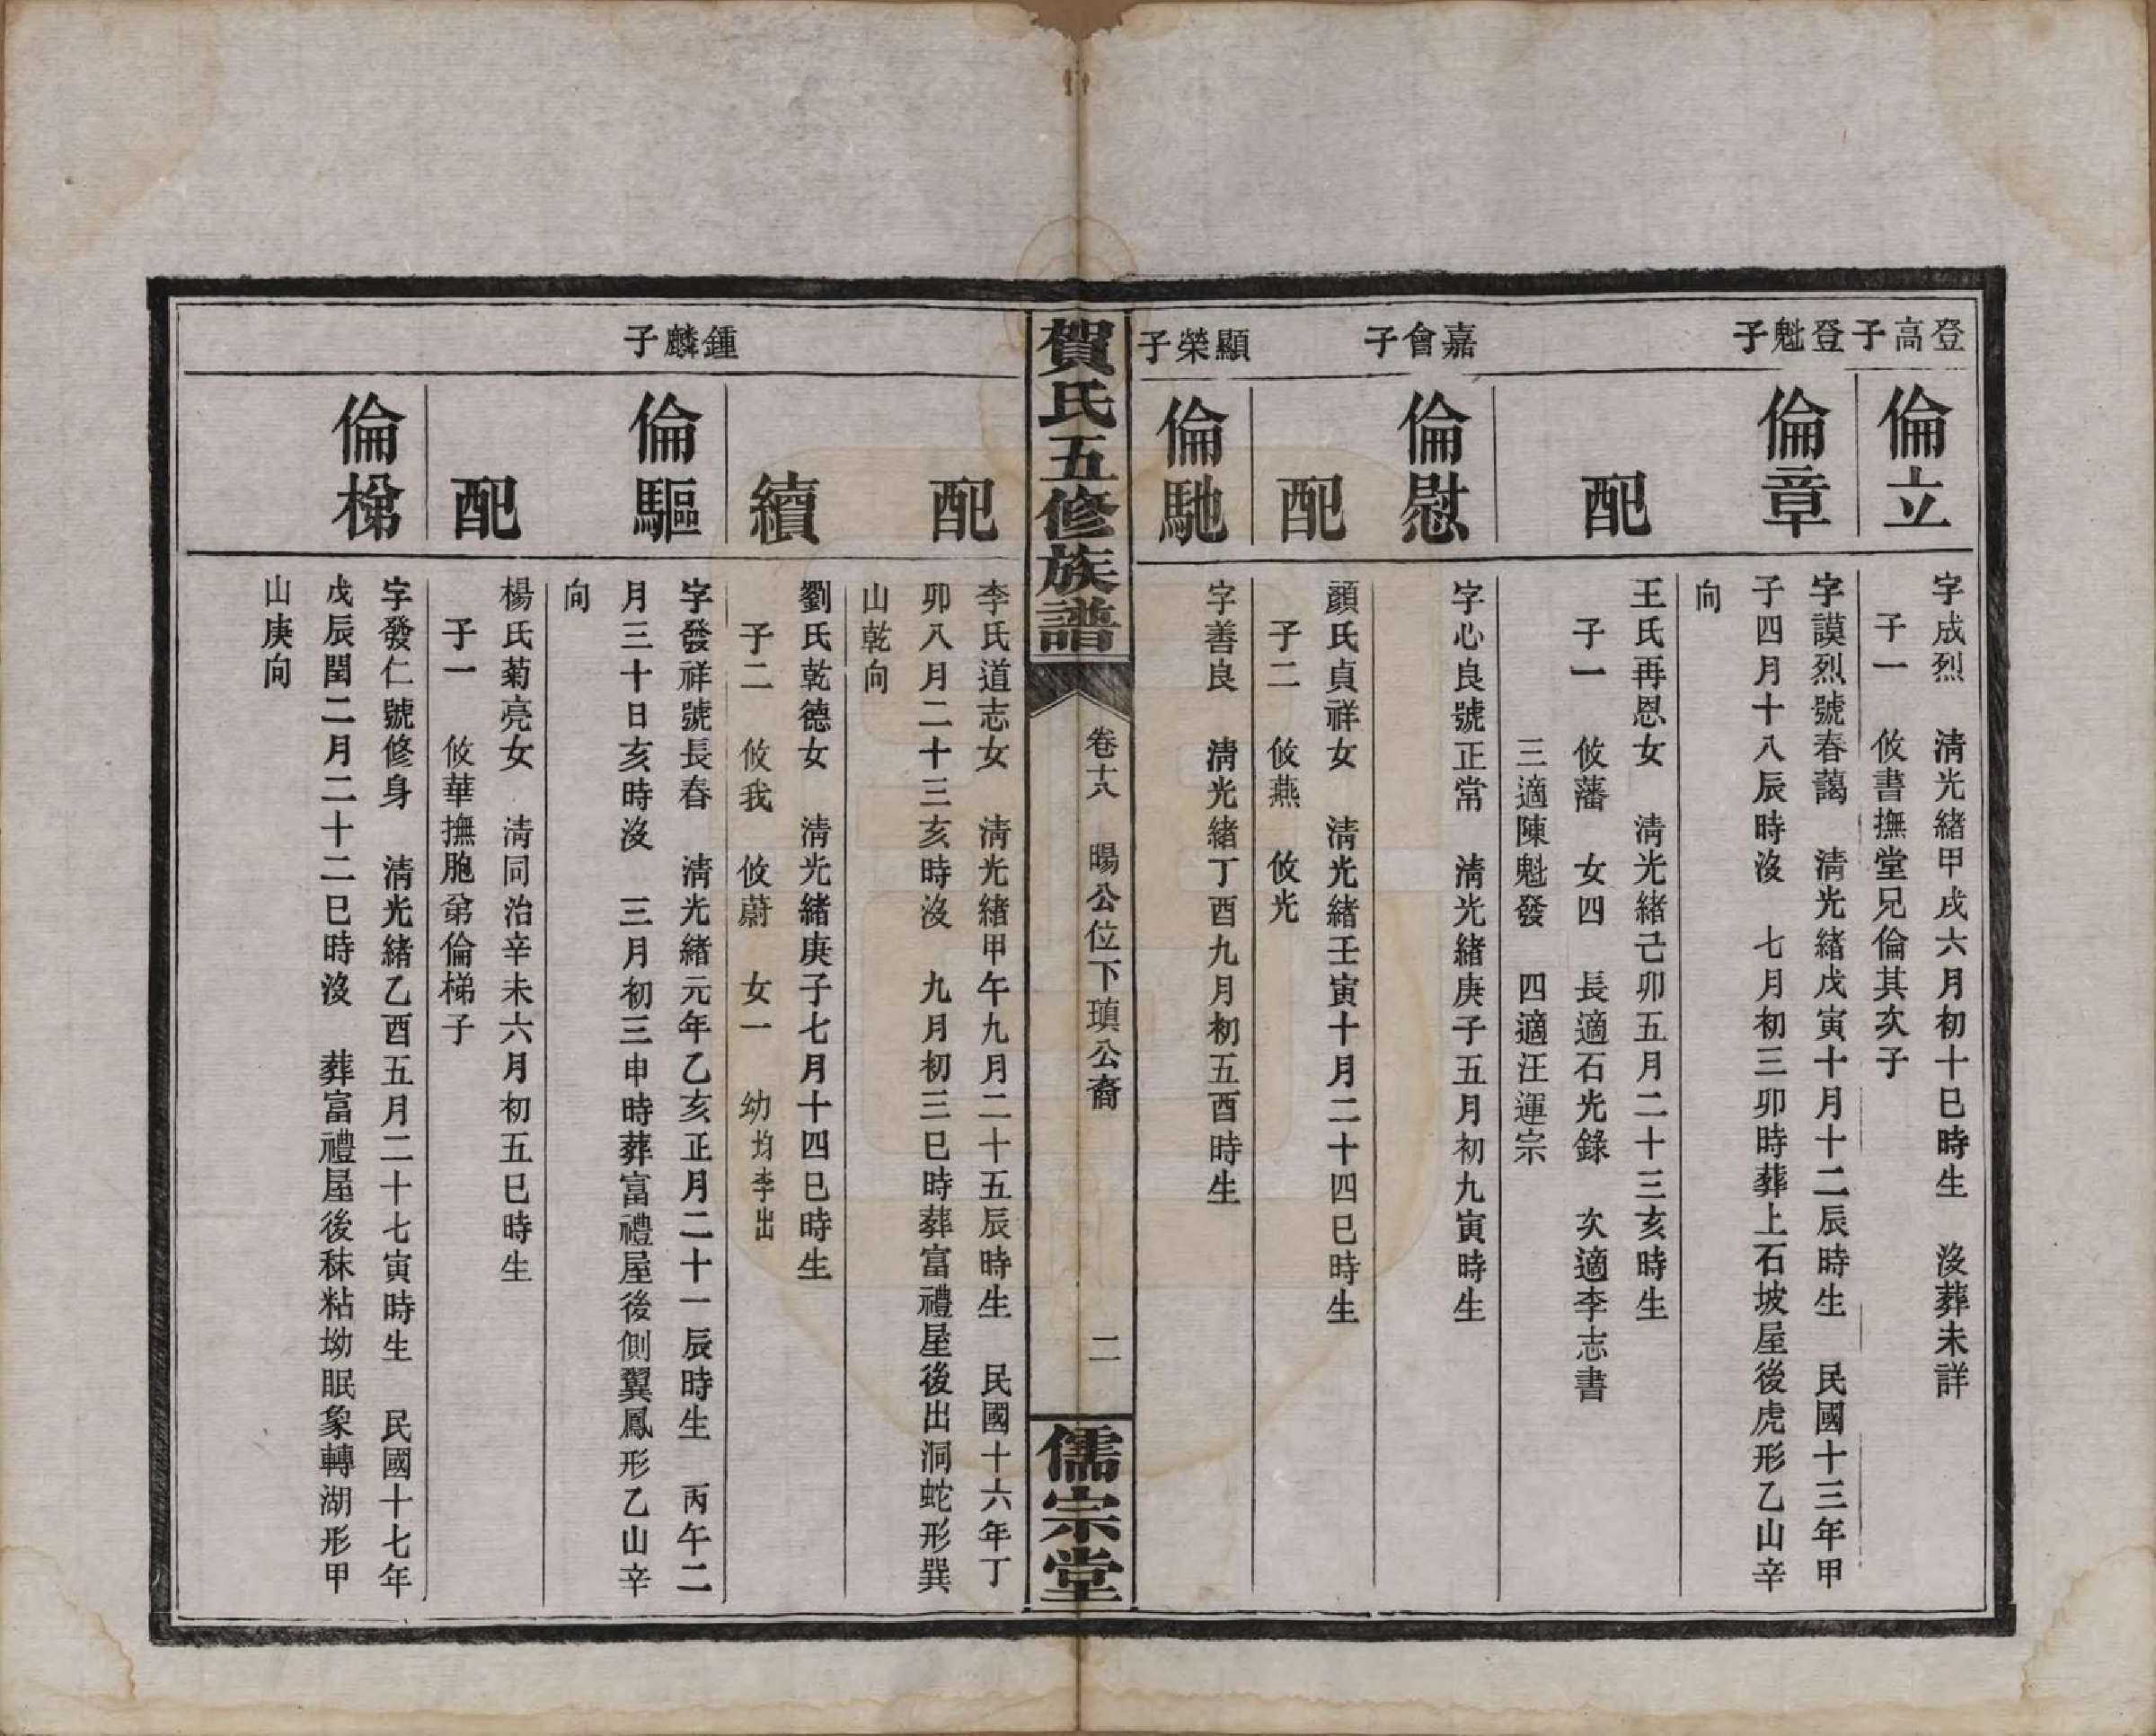 登高子
倫立
字成烈　清光緒甲戌六月初十巳時生　沒葬未詳
子一　攸書撫堂兄倫其次子
登魁子
倫章
字謨烈號春藹　清光緒戊寅十月十二辰時生　民國十三年甲
子四月十八辰時沒　七月初三卯時葬上石坡屋後虎形乙山辛
向
配
王氏再恩女　清光緒己卯五月二十三亥時生
子一　攸藩　女四　長適石光錄　次適李志書
三適陳魁發　四適汪運宗
嘉會子
倫慰
字心良號正常　清光緒庚子五月初九寅時生
配
顏氏貞祥女　清光緒壬寅十月二十四巳時生
子二　攸燕　攸光
顯榮子
倫馳
字善良　清光緒丁酉九月初五酉時生
賀氏五修族譜
卷十八　暘公位下瑱公裔　二
儒宗堂
配
李氏道志女　清光緒甲午九月二十五辰時生　民國十六年丁
卯八月二十三亥時沒　九月初三巳時葬富禮屋後出洞蛇形巽
山乾向
續
劉氏乾德女　清光緒庚子七月十四巳時生
子二　攸我　攸蔚　女一　幼均李出
鍾麟子
倫驅
字發祥號長春　清光緒元年乙亥正月二十一辰時生　丙午二
月三十日亥時沒　三月初三申時葬富禮屋後側翼鳳形乙山辛
向
配
楊氏菊亮女　清同治辛未六月初五巳時生
子一　攸華撫胞弟倫梯子
倫梯
字發仁號修身　清光緒乙酉五月二十七寅時生　民國十七年
戊辰閏二月二十二巳時沒　葬富禮屋後秣粘坳眠象轉湖形甲
山庚向